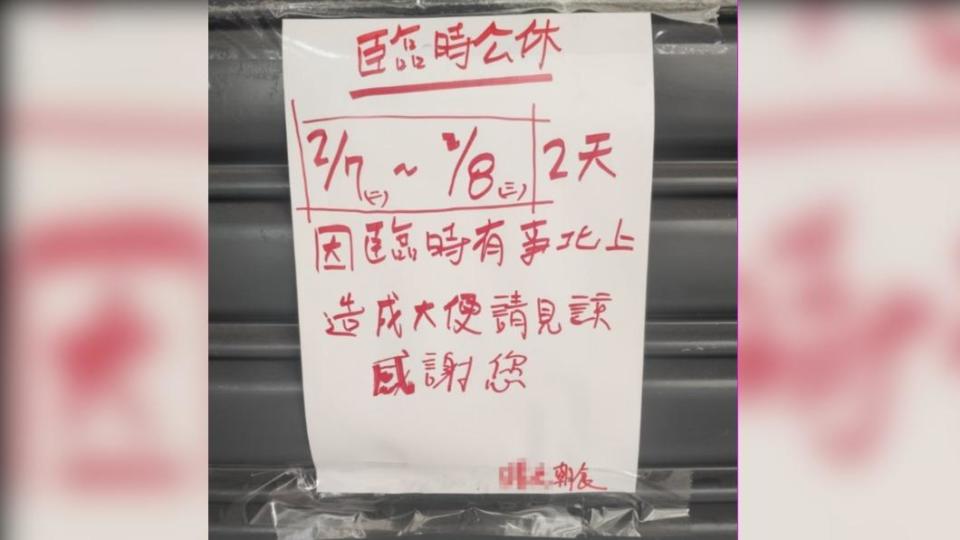 臨時公休
2/7(二)~2/8(三) 2天
因臨時有事北上
造成大便請見諒
感謝您
朝食